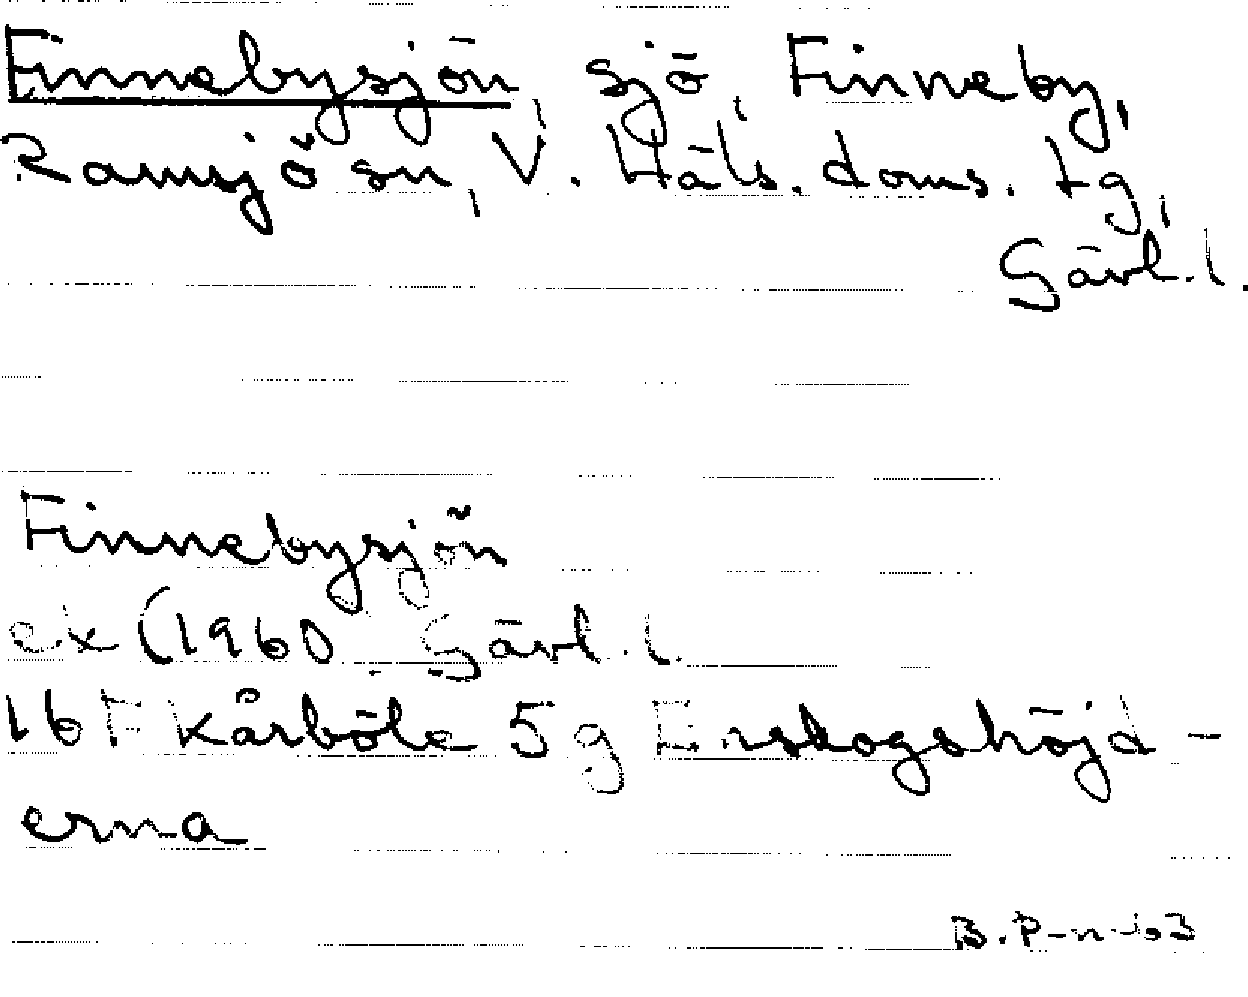 Finnebysjön, sjö, Finneby,
Ramsjö sn, V. Häls. doms. tg,
Gävl. l.
Finnebysjön
ek (1960 Gävl. l.
16F Kårböle 5g Enskogshöjd-
erna
B. P-n